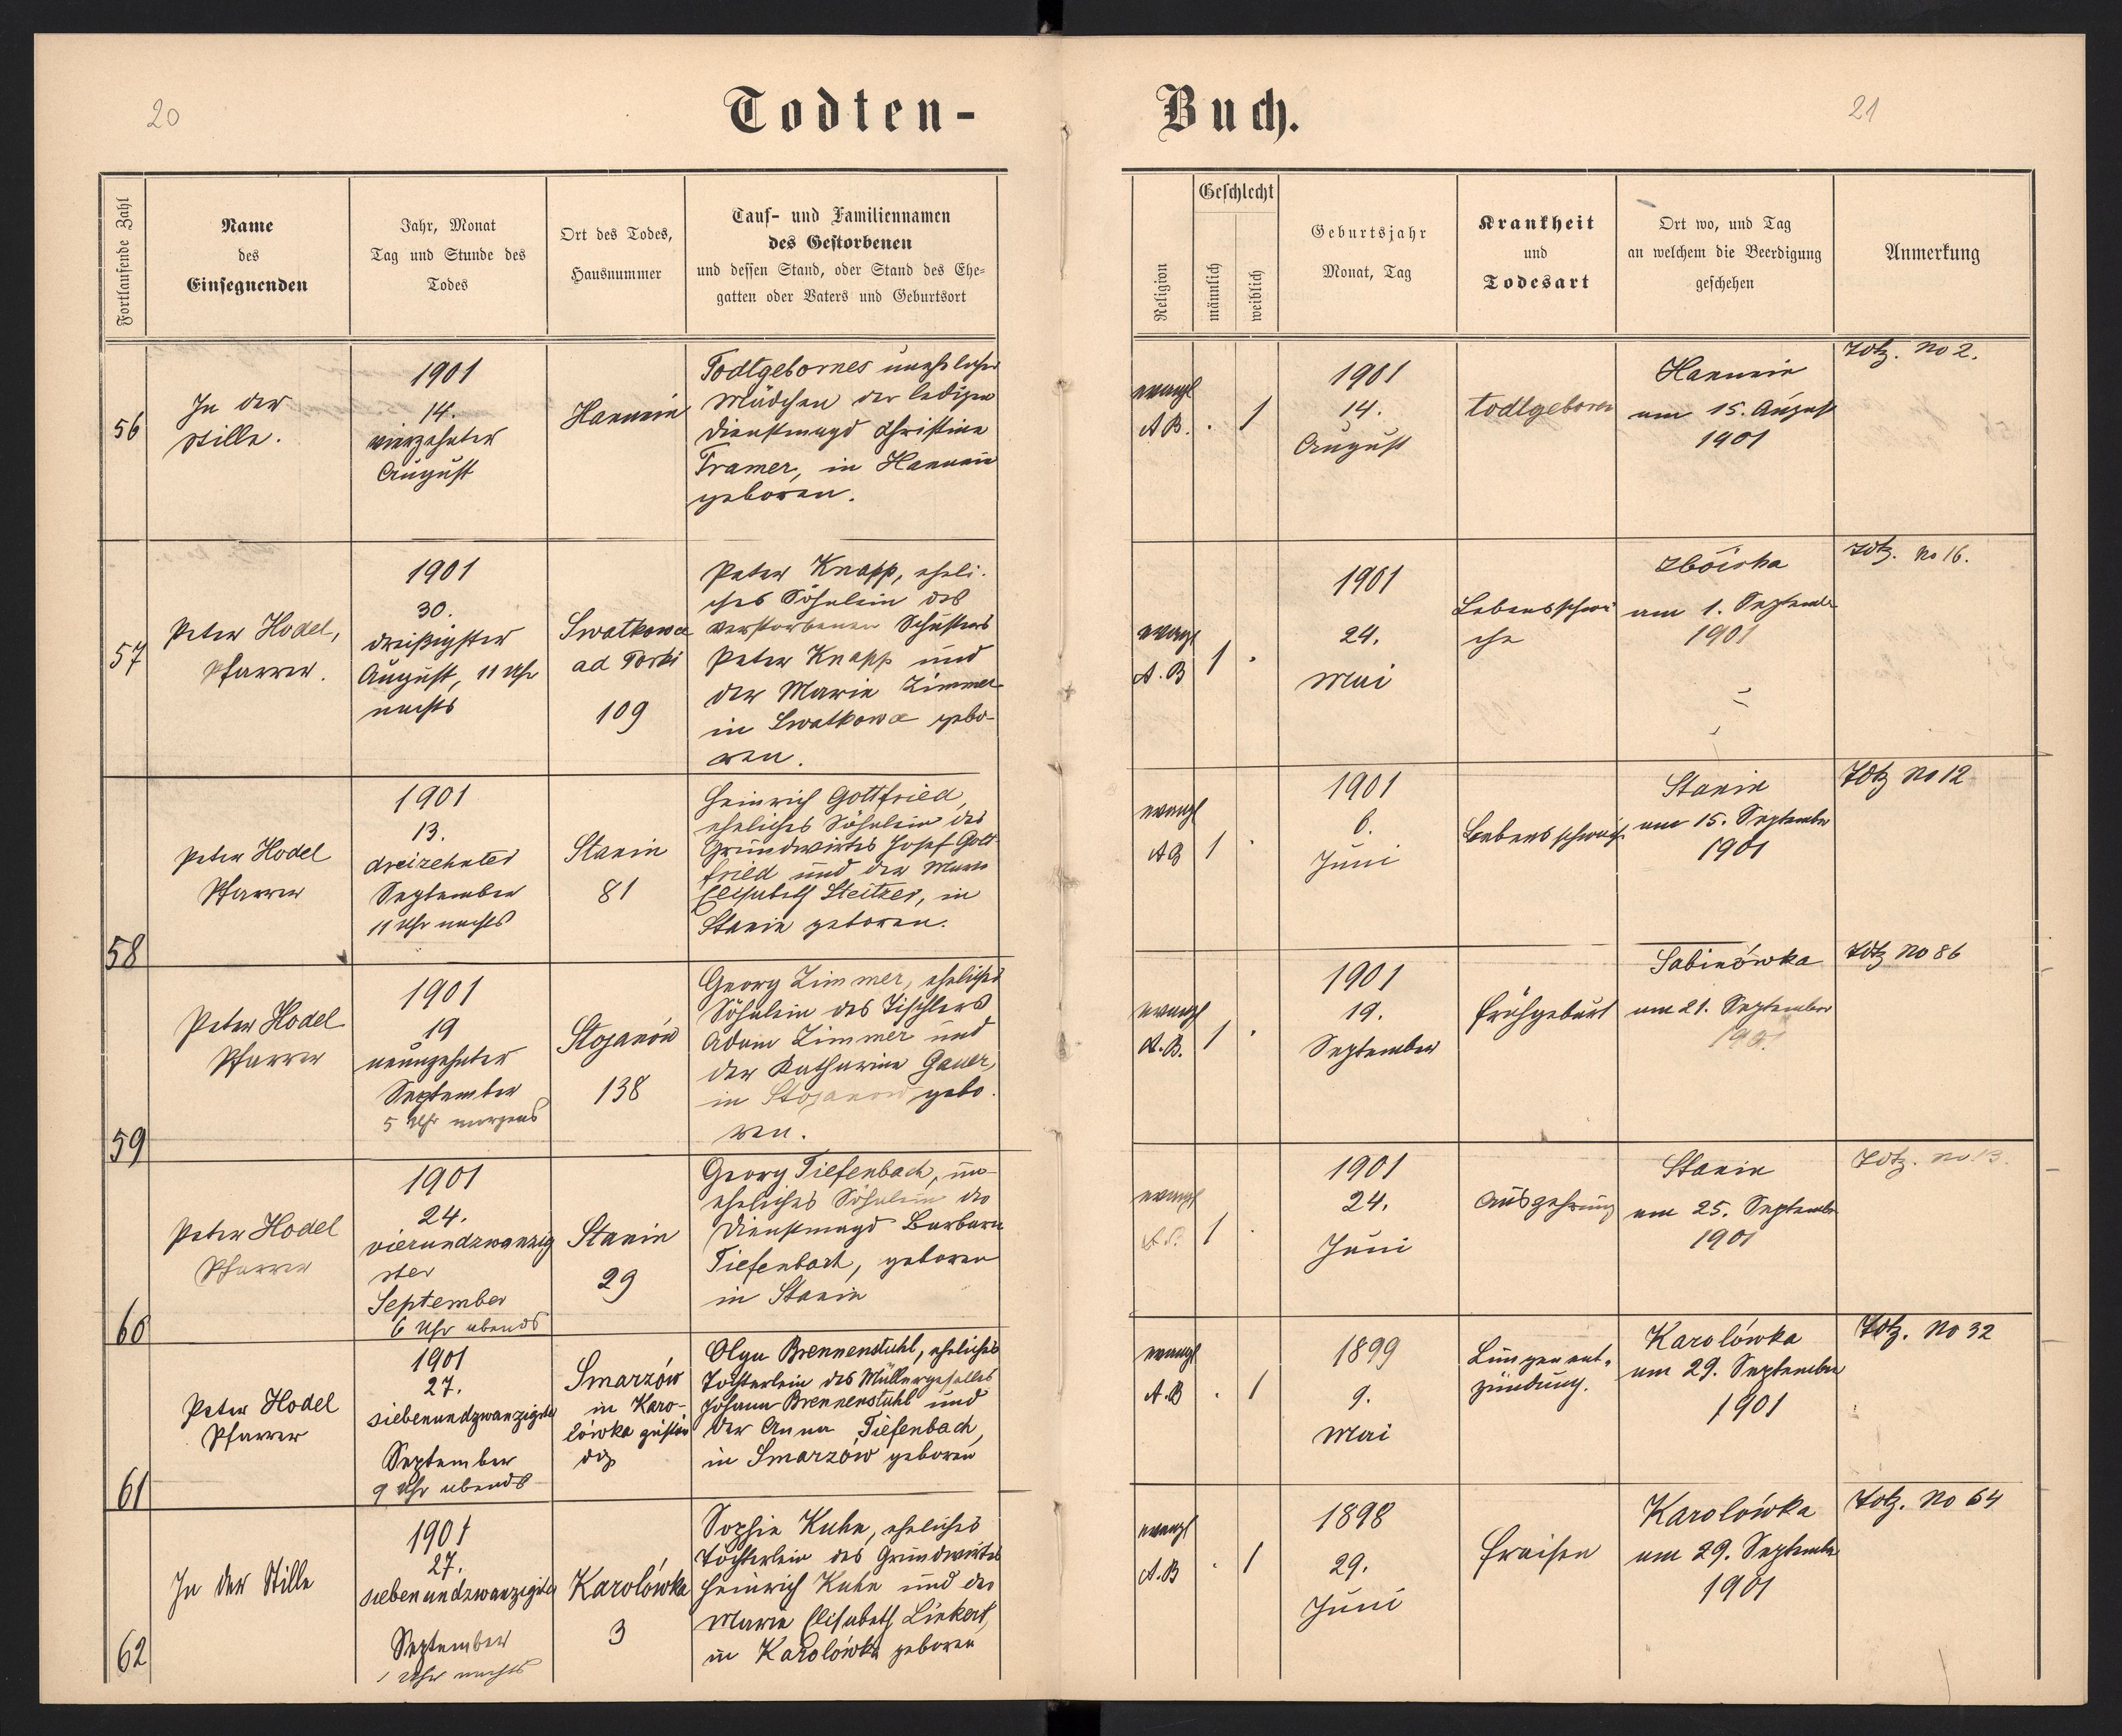 20
Todten-
Buch.
21
Fortlaufende Zahl
Name
des
Einsegnenden
Jahr, Monat
Tag und Stunde des
Todes
Ort des Todes,
Hausnummer
Tauf- und Familiennamen
des Gestorbenen
und dessen Stand, oder Stand des Ehe-
gatten oder Vaters und Geburtsort
Religion
Geschlecht
männlich
weiblich
Geburtsjahr
Monat, Tag
Krankheit
und
Todesart
Ort wo, und Tag
an welchem die Beerdigung
geschehen
Anmerkung
56
In der
Stille.
1901
14.
vierzehnter
August
Hanunin
Todtgebornes uneheliches
Mädchen der ledigen
Dienstmagd Christine
Tramer, in Hanunin
geboren.
evangl
A B.
.
1
1901
14.
August
todtgeboren
Hanunin
am 15. August
1901
Totz. No 2.
57
Peter Hodel,
Pfarrer.
1901
30.
dreißigster
August, 11 Uhr
nachts
Swatkowa
ad Torki
109
Peter Knapp, eheli-
ches Söhnlein des
verstorbenen Schusters
Peter Knapp und
der Marie Zimmer
in Swatkowa gebo-
ren.
evangl
A. B
1
.
1901
24.
Mai
Lebensschwä
che
Zboiska
am 1. September
1901
Totz. No 16.
58
Peter Hodel
Pfarrer
1901
13.
dreizehnter
September
11 Uhr nachts
Stanin
81
Heinrich Gottfried,
eheliches Söhnlein des
Grundwirtes Josef Gott-
fried und der Marie
Elisabeth Steitzer, in
Stanin geboren.
evangl
AB
1
.
1901
6.
Juni
Lebensschwäche
Stanin
am 15. September
1901
Totz No 12
59
Peter Hodel
Pfarrer
1901
19
neunzehnter
September
5 Uhr morgens
Stojanów
138
Georg Zimmer, eheliches
Söhnlein des Tischlers
Adam Zimmer und
der Katharine Gauer,
in Stojanow gebo-
ren.
evangl
A. B.
1
.
1901
19.
September
Frühgeburt
Sabinówka
am 21. September
1901
Totz No 86
60
Peter Hodel
Pfarrer
1901
24.
vierundzwanzig
ster
September
6 Uhr abends
Stanin
29
Georg Tiefenbach, un-
eheliches Söhnlein der
Dienstmagd Barbara
Tiefenbach, geboren
in Stanin
evangl
A. B.
1
.
1901
24.
Juni
Auszehrung
Stanin
am 25. September
1901
Totz. No 13.
61
Peter Hodel
Pfarrer
1901
27.
siebenundzwanzigster
September
9 Uhr abends
Smarzów
in Karo-
lówka zustän
dig
Olga Brennenstuhl, eheliches
Töchterlein des Müllergesellen
Johann Brennenstuhl und
der Anna Tiefenbach,
in Smarzów geboren
evangl
A. B
.
1
1899
9.
Mai
Lungenent-
zündung.
Karolówka
am 29. September
1901
Totz. No 32
62
In der Stille
1901
27.
siebenundzwanzigster
September
1 Uhr nachts
Karolówka
3
Sophie Kuhn, eheliches
Töchterlein des Grundwirtes
Heinrich Kuhn und der
Marie Elisabeth Linkert,
in Karolówka geboren
evangl
A. B
.
1
1898
29.
Juni
Fraisen
Karolówka
am 29. September
1901
Totz. No 64